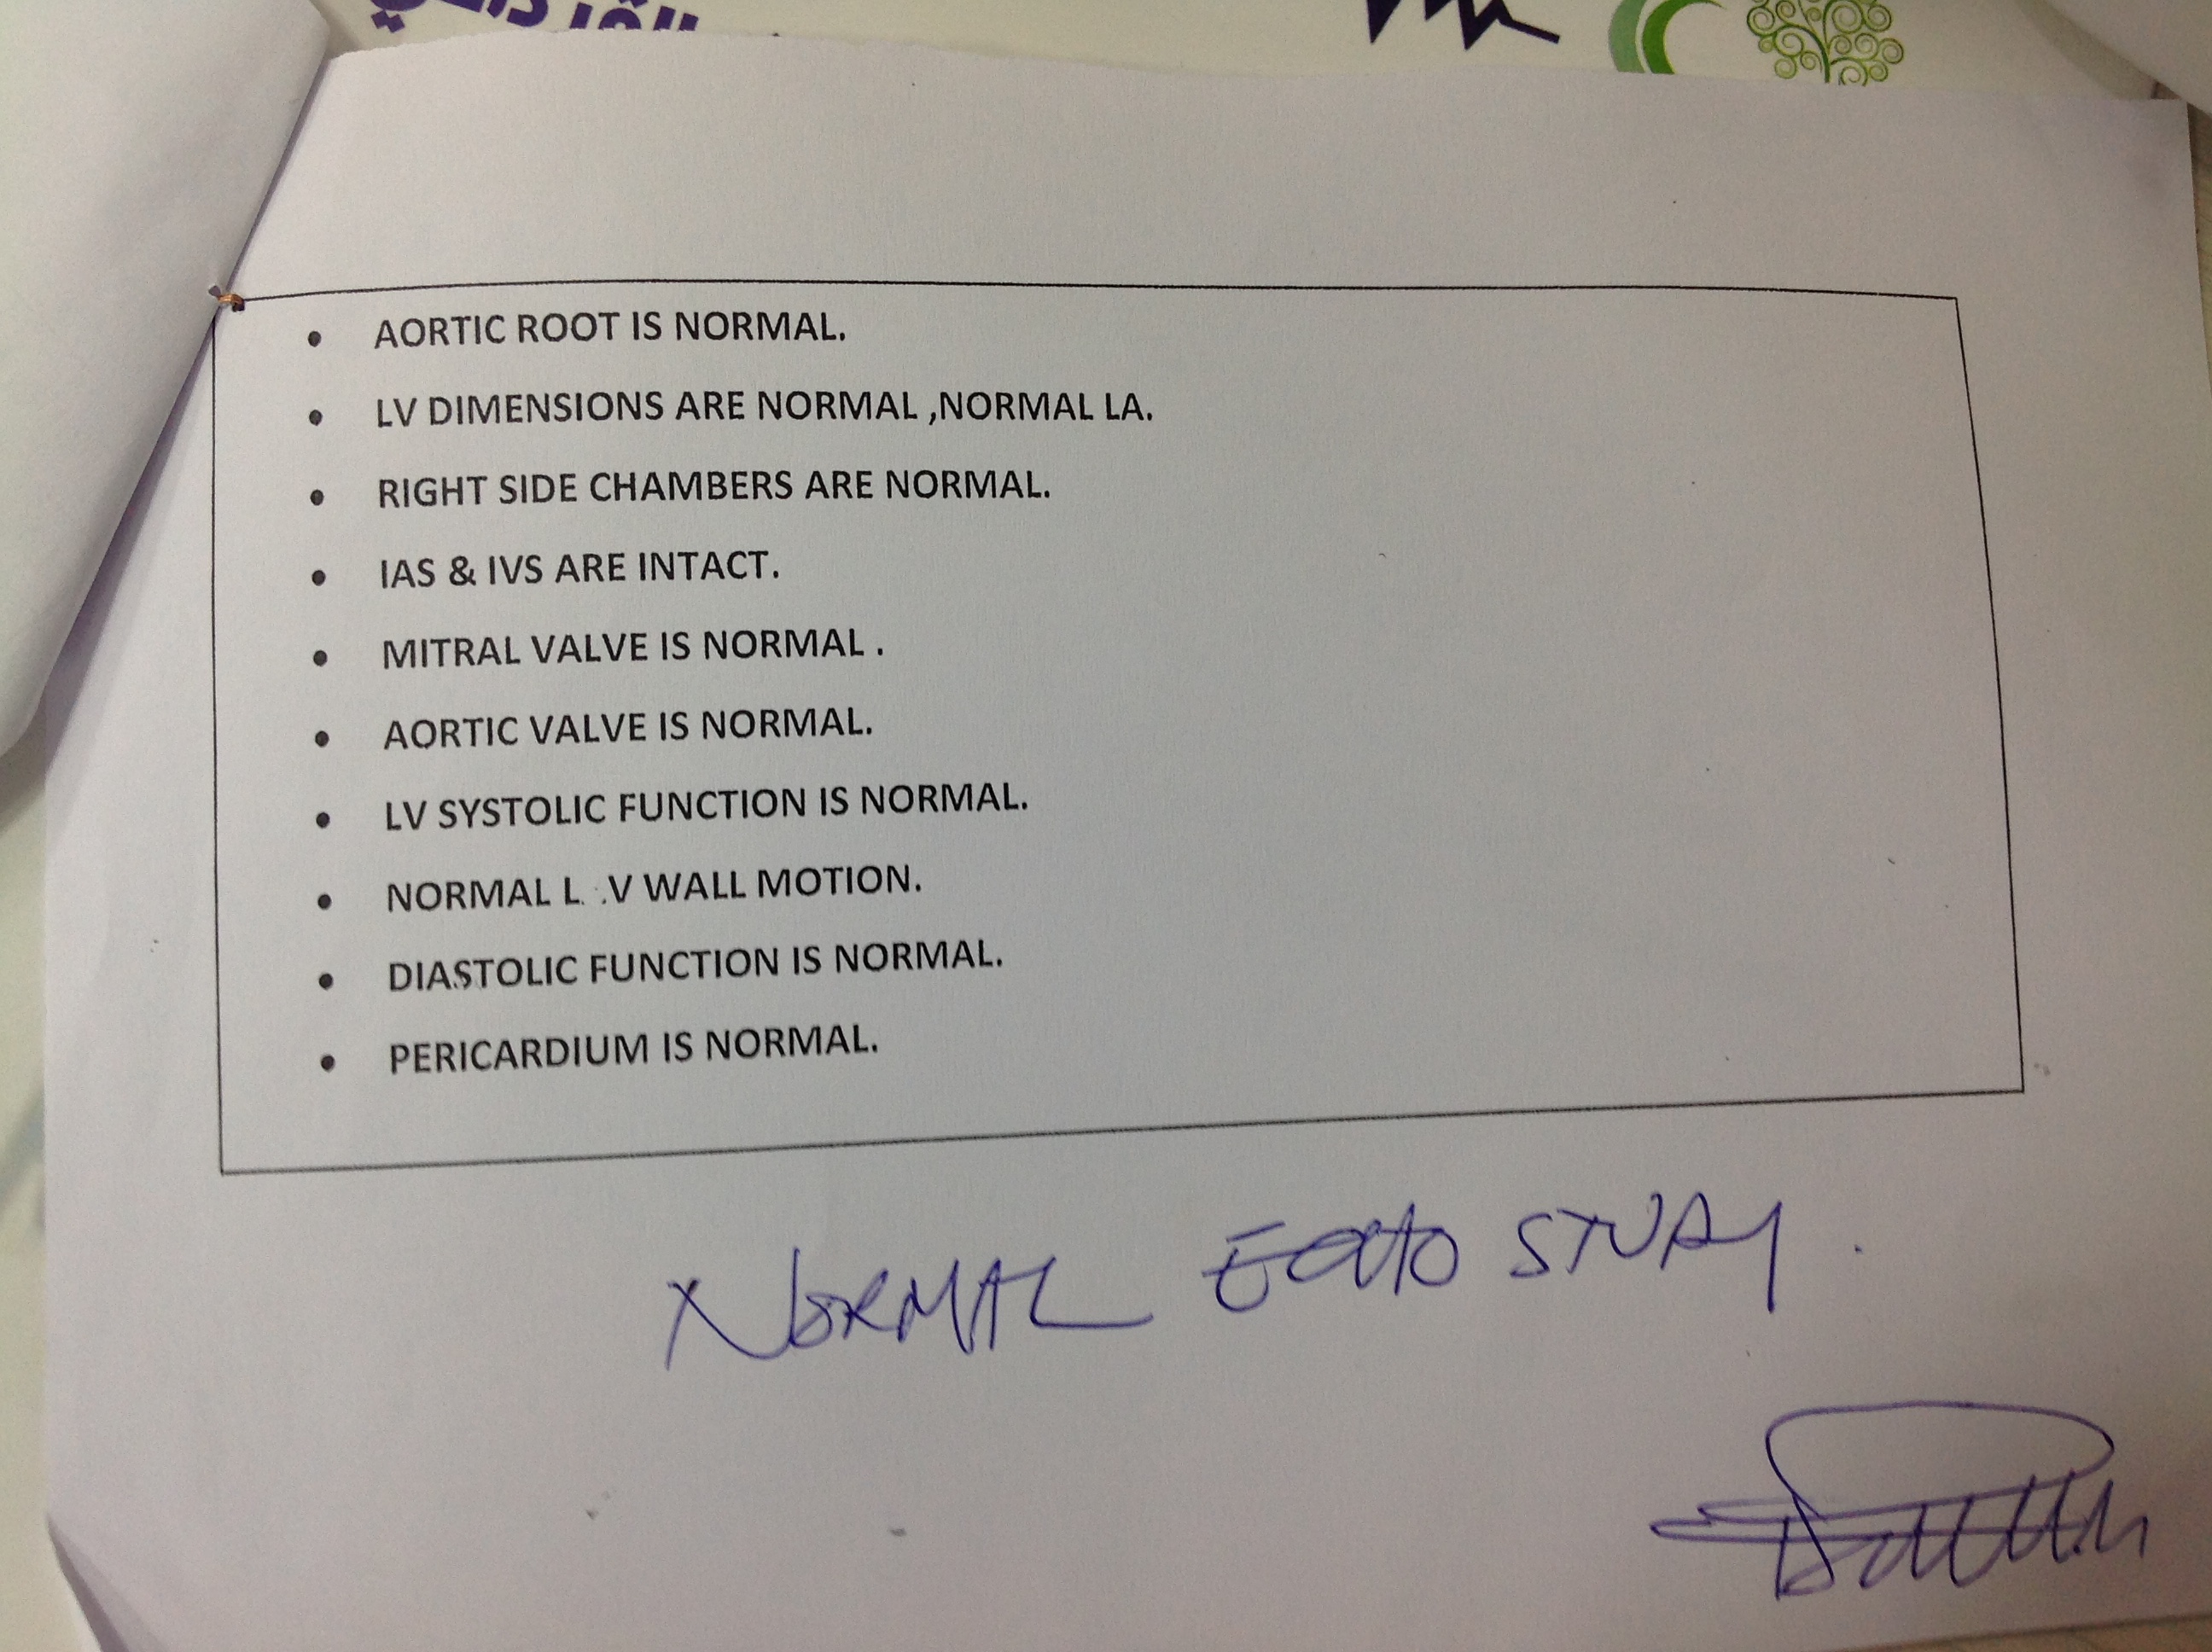 • AORTIC ROOT IS NORMAL.
• LV DIMENSIONS ARE NORMAL ,NORMAL LA.
• RIGHT SIDE CHAMBERS ARE NORMAL.
• IAS & IVS ARE INTACT.
• MITRAL VALVE IS NORMAL .
• AORTIC VALVE IS NORMAL.
• LV SYSTOLIC FUNCTION IS NORMAL.
• NORMAL L. .V WALL MOTION.
• DIASTOLIC FUNCTION IS NORMAL.
• PERICARDIUM IS NORMAL.
NORMAL ECHO STUDY .